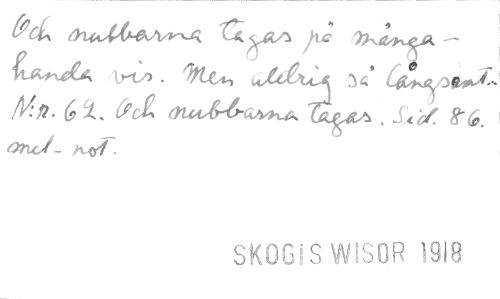 Och nubbarna tagas på många-
handa vis. Men aldrig så långsamt.
N:r. 62. Och nubbarna tagas. Sid. 86.
mel-not.
SKOGIS WISOR 1918